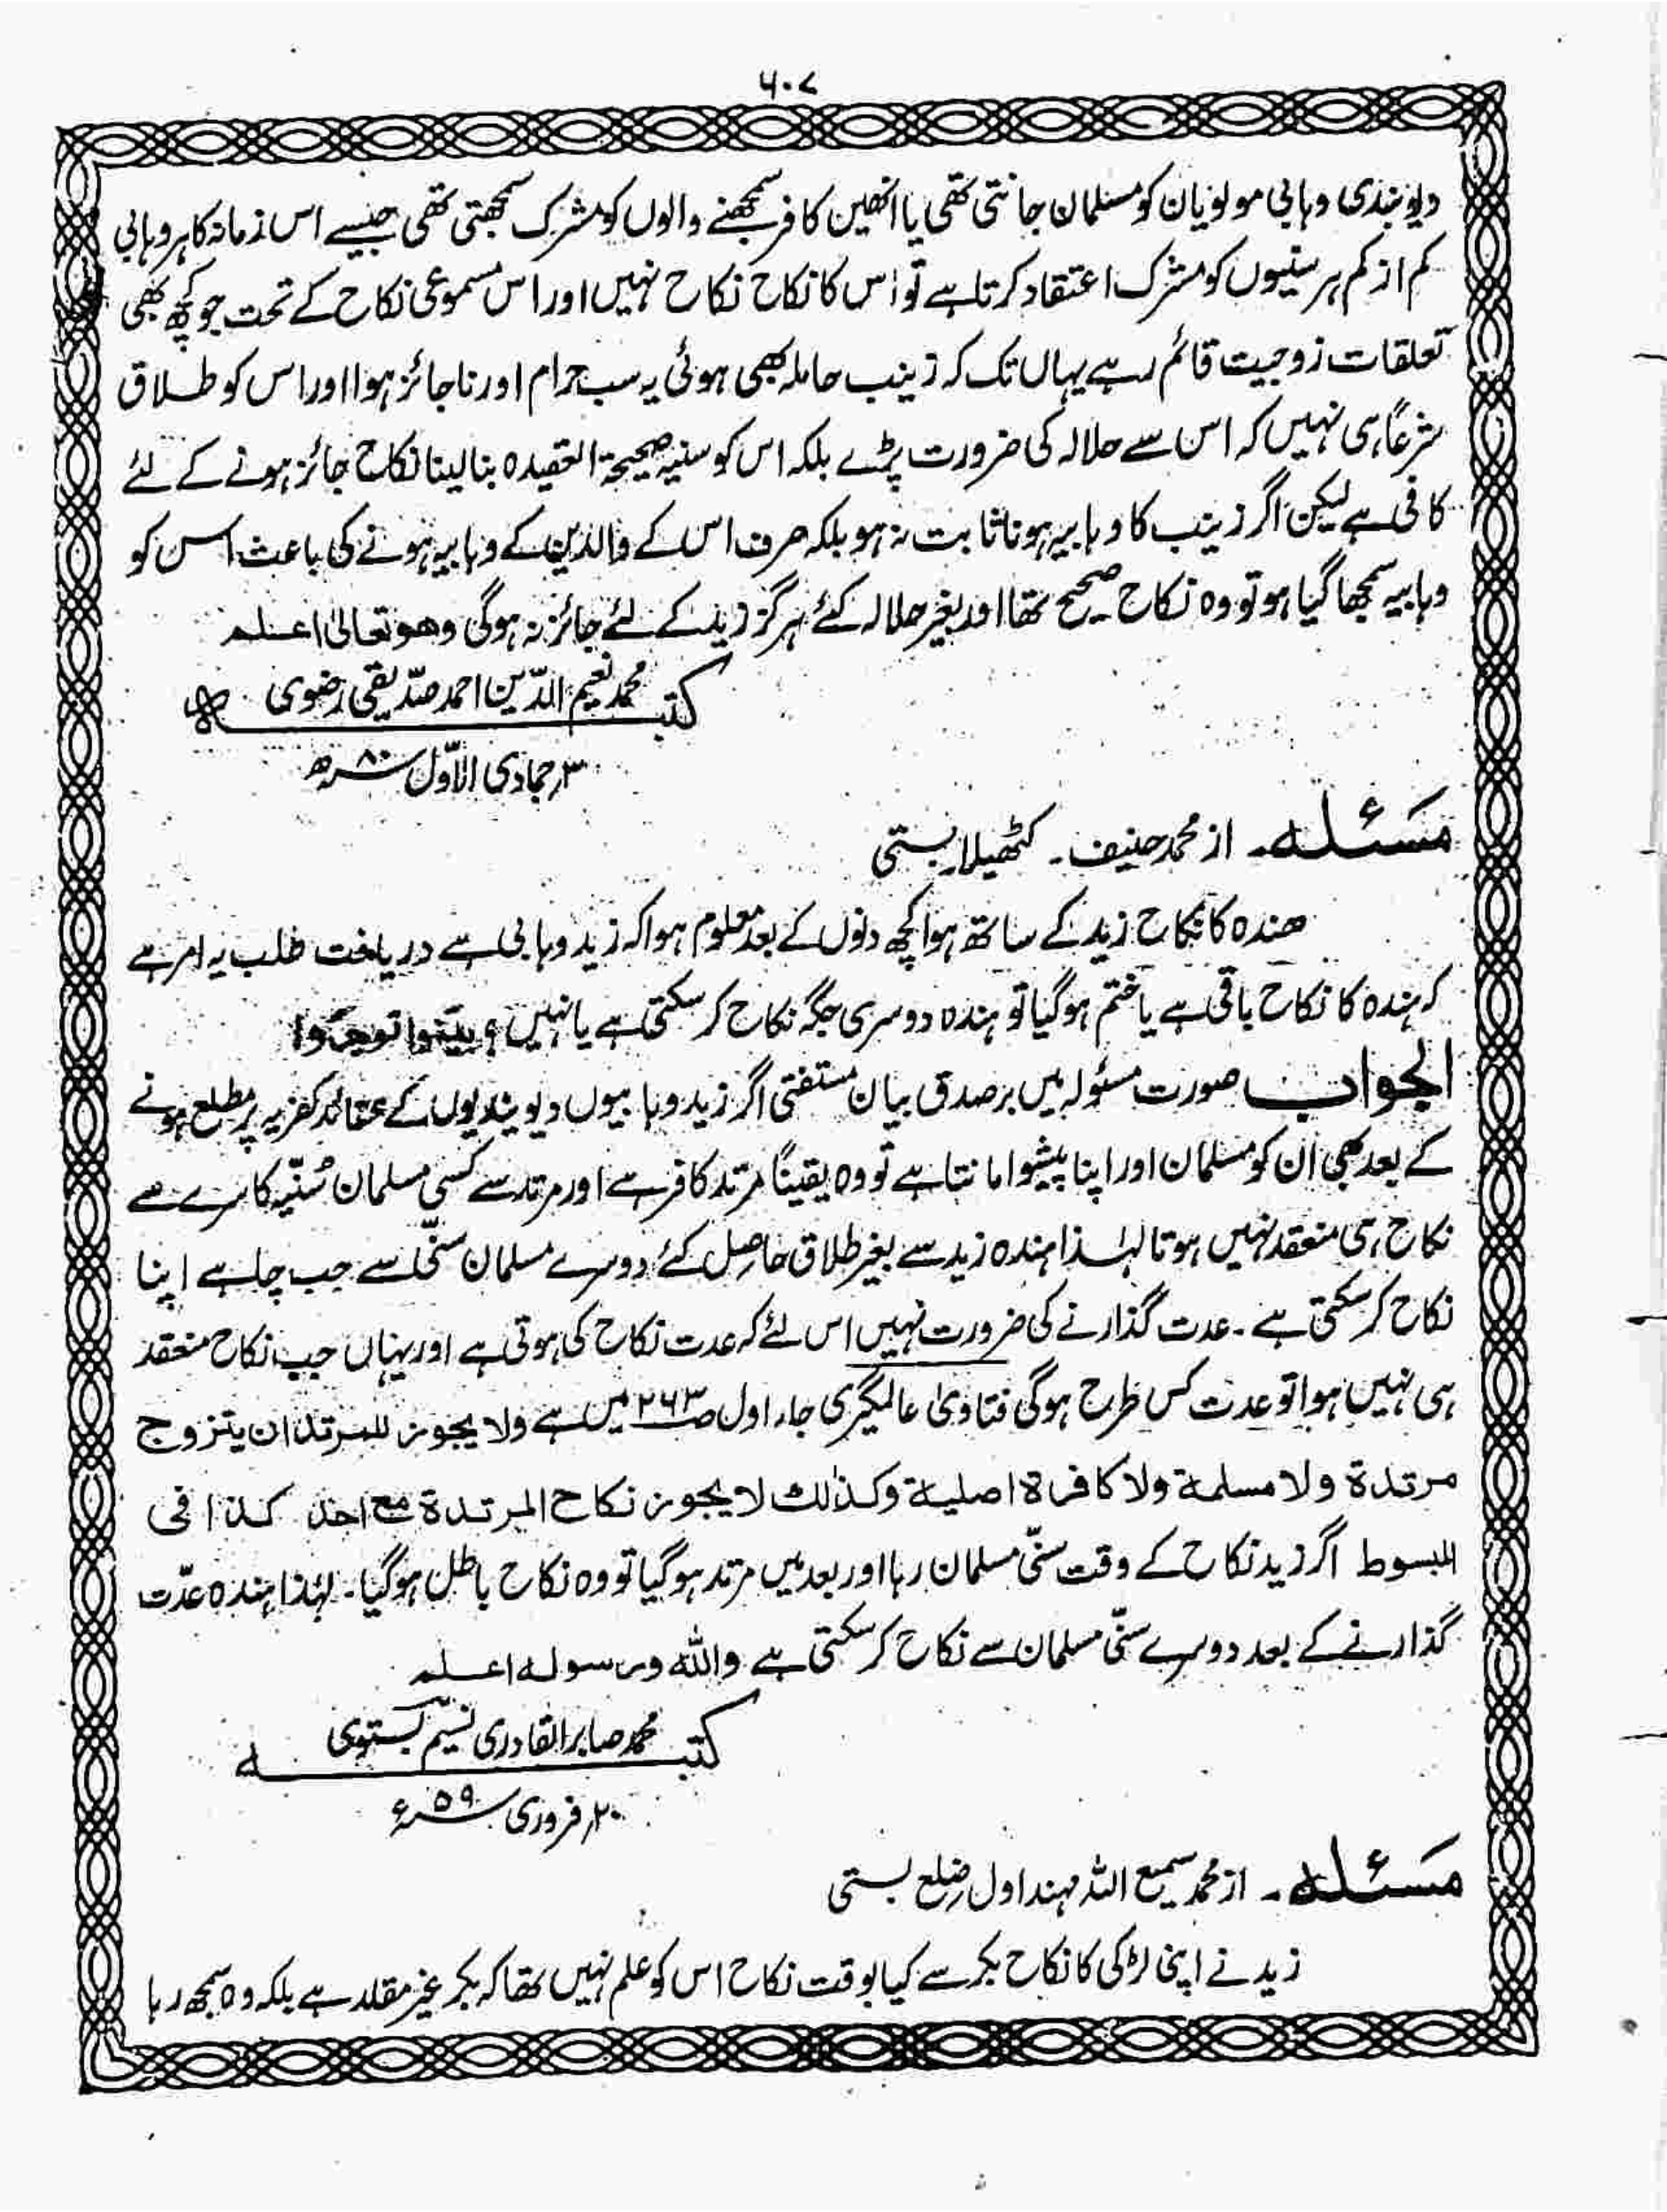 ۶۰۷
دیوبندی وہابی مولویان کو مسلمان جانتی تھی یا انھین کافر سمجھنے والوں کو مشرک سمجھتی تھی جیسے اس زمانہ کا ہر وہابی
کم از کم ہر سنیوں کو مشرک اعتقاد کرتا ہے تو اُس کا نکاح نکاح نہیں اور اس مسموعی نکاح کے تحت جو کچھ بھی
تعلقات زوجیت قائم رہے یہاں تک کہ زینب حاملہ بھی ہوئی یہ سب حرام اور ناجائز ہوا اور اس کو طلاق
شرعًا ہی نہیں کہ اس سے حلالہ کی ضرورت پڑے بلکہ اس کو سنیہ صحیحۃ العقیدہ بنالینا نکاح جائز ہونے کے لئے
کافی ہے لیکن اگر زینب کا وہابیہ ہونا ثابت نہ ہو بلکہ صرف اس کے والدین کے وہابیہ ہونے کی باعث اس کو
وہابیہ سمجھا گیا ہو تو وہ نکاح صحیح تھا اور بغیر حلالہ کئے ہرگز زید کے لئے جائز نہ ہوگی وھو تعالیٰ اعلم
کتبہ محمد نعیم الدّین احمد صدّیقی رضوی
۳؍ جمادی الاوّل ۸۰ھ
مَسئلہ۔ از محمد حنیف۔ کٹھیلا بستی
ھندہ کا نکاح زید کے ساتھ ہوا کچھ دنوں کے بعد معلوم ہوا کہ زید وہابی ہے دریافت طلب یہ امر ہے
کہ ہندہ کا نکاح باقی ہے یا ختم ہوگیا تو ہندہ دوسری جگہ نکاح کر سکتی ہے یا نہیں؟ بیّنوا توجروا
الجواب صورت مسئولہ میں بر صدق بیان مستفتی اگر زید وہابیوں دیوبندیوں کے عقائد کفریہ پر مطلع ہونے
کے بعد بھی ان کو مسلمان اور اپنا پیشوا مانتا ہے تو وہ یقینًا مرتد کافر ہے اور مرتد سے کسی مسلمان سُنّیہ کا سرے سے
نکاح ہی منعقد نہیں ہوتا لہٰذا ہندہ زید سے بغیر طلاق حاصل کئے دوسرے مسلمان سنّی سے جب چاہے اپنا
نکاح کرسکتی ہے۔ عدت گذارنے کی ضرورت نہیں اس لئے کہ عدت نکاح کی ہوتی ہے اور یہاں جب نکاح منعقد
ہی نہیں ہوا تو عدت کس طرح ہوگی فتاویٰ عالمگیری جلد اول ص۲۶۳ میں ہے ولا یجوز للمرتد ان یتزوج
مرتدۃ ولا مسلمۃ ولا کافرۃ اصلیۃ وکذٰلک لا یجوز نکاح المرتدۃ مع احد کذا فی
المبسوط اگر زید نکاح کے وقت سنّی مسلمان رہا اور بعد میں مرتد ہوگیا تو وہ نکاح باطل ہوگیا۔ لہٰذا ہندہ عدّت
گذارنے کے بعد دوسرے سنّی مسلمان سے نکاح کرسکتی ہے واللہ ورسولہ اعلم
کتبہ محمد صابر القادری نسیم بستوی
۲۰؍ فروری ۵۹ء
مَسئلہ۔ از محمد سمیع اللہ مہنداول ضلع بستی
زید نے اپنی لڑکی کا نکاح بکر سے کیا بوقت نکاح اس کو علم نہیں تھا کہ بکر غیر مقلد ہے بلکہ وہ سمجھ رہا